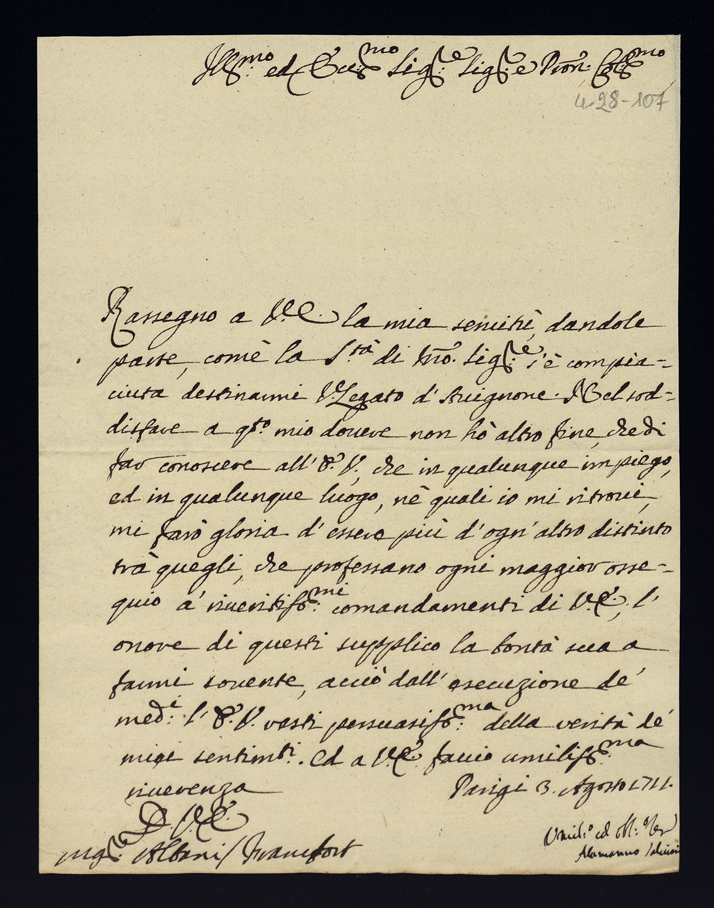 Ill:mo ed Ecc:mo Sig:e Sig:e Pron: Col:mo
4-28-107
Rassegno a V:E: la mia servitù, dandole
parte, comè la S:tà di Nro: Sig:e s'è compia=
ciuta destinarmi V:Legato d'Avignone. Nel sod=
disfare a qto: mio dovere non hò altro fine, che di
far conoscere all'E: V:, che in qualunque impiego,
ed in qualunque luogo, nè quali io mi ritrovi,
mi farò gloria d'essere più d'ogn'altro distinto
trà quegli, che professano ogni maggior osse=
quio a' riveritiss:mi comandamenti di V:E:, l'
onore di questi supplico la bontà sua a
farmi sovente, acciò dall'esecuzione de'
med:i l'E: V: resti persuasiss:ma della verità de'
miei sentimti:. Ed a V:E: faccio umiliss:ma
riverenza Parigi 3. Agosto 1711.
D V:E:
Mg:e Albani / Francfort
Umil:o ed Obl:o Ser
Alamanno Salviati